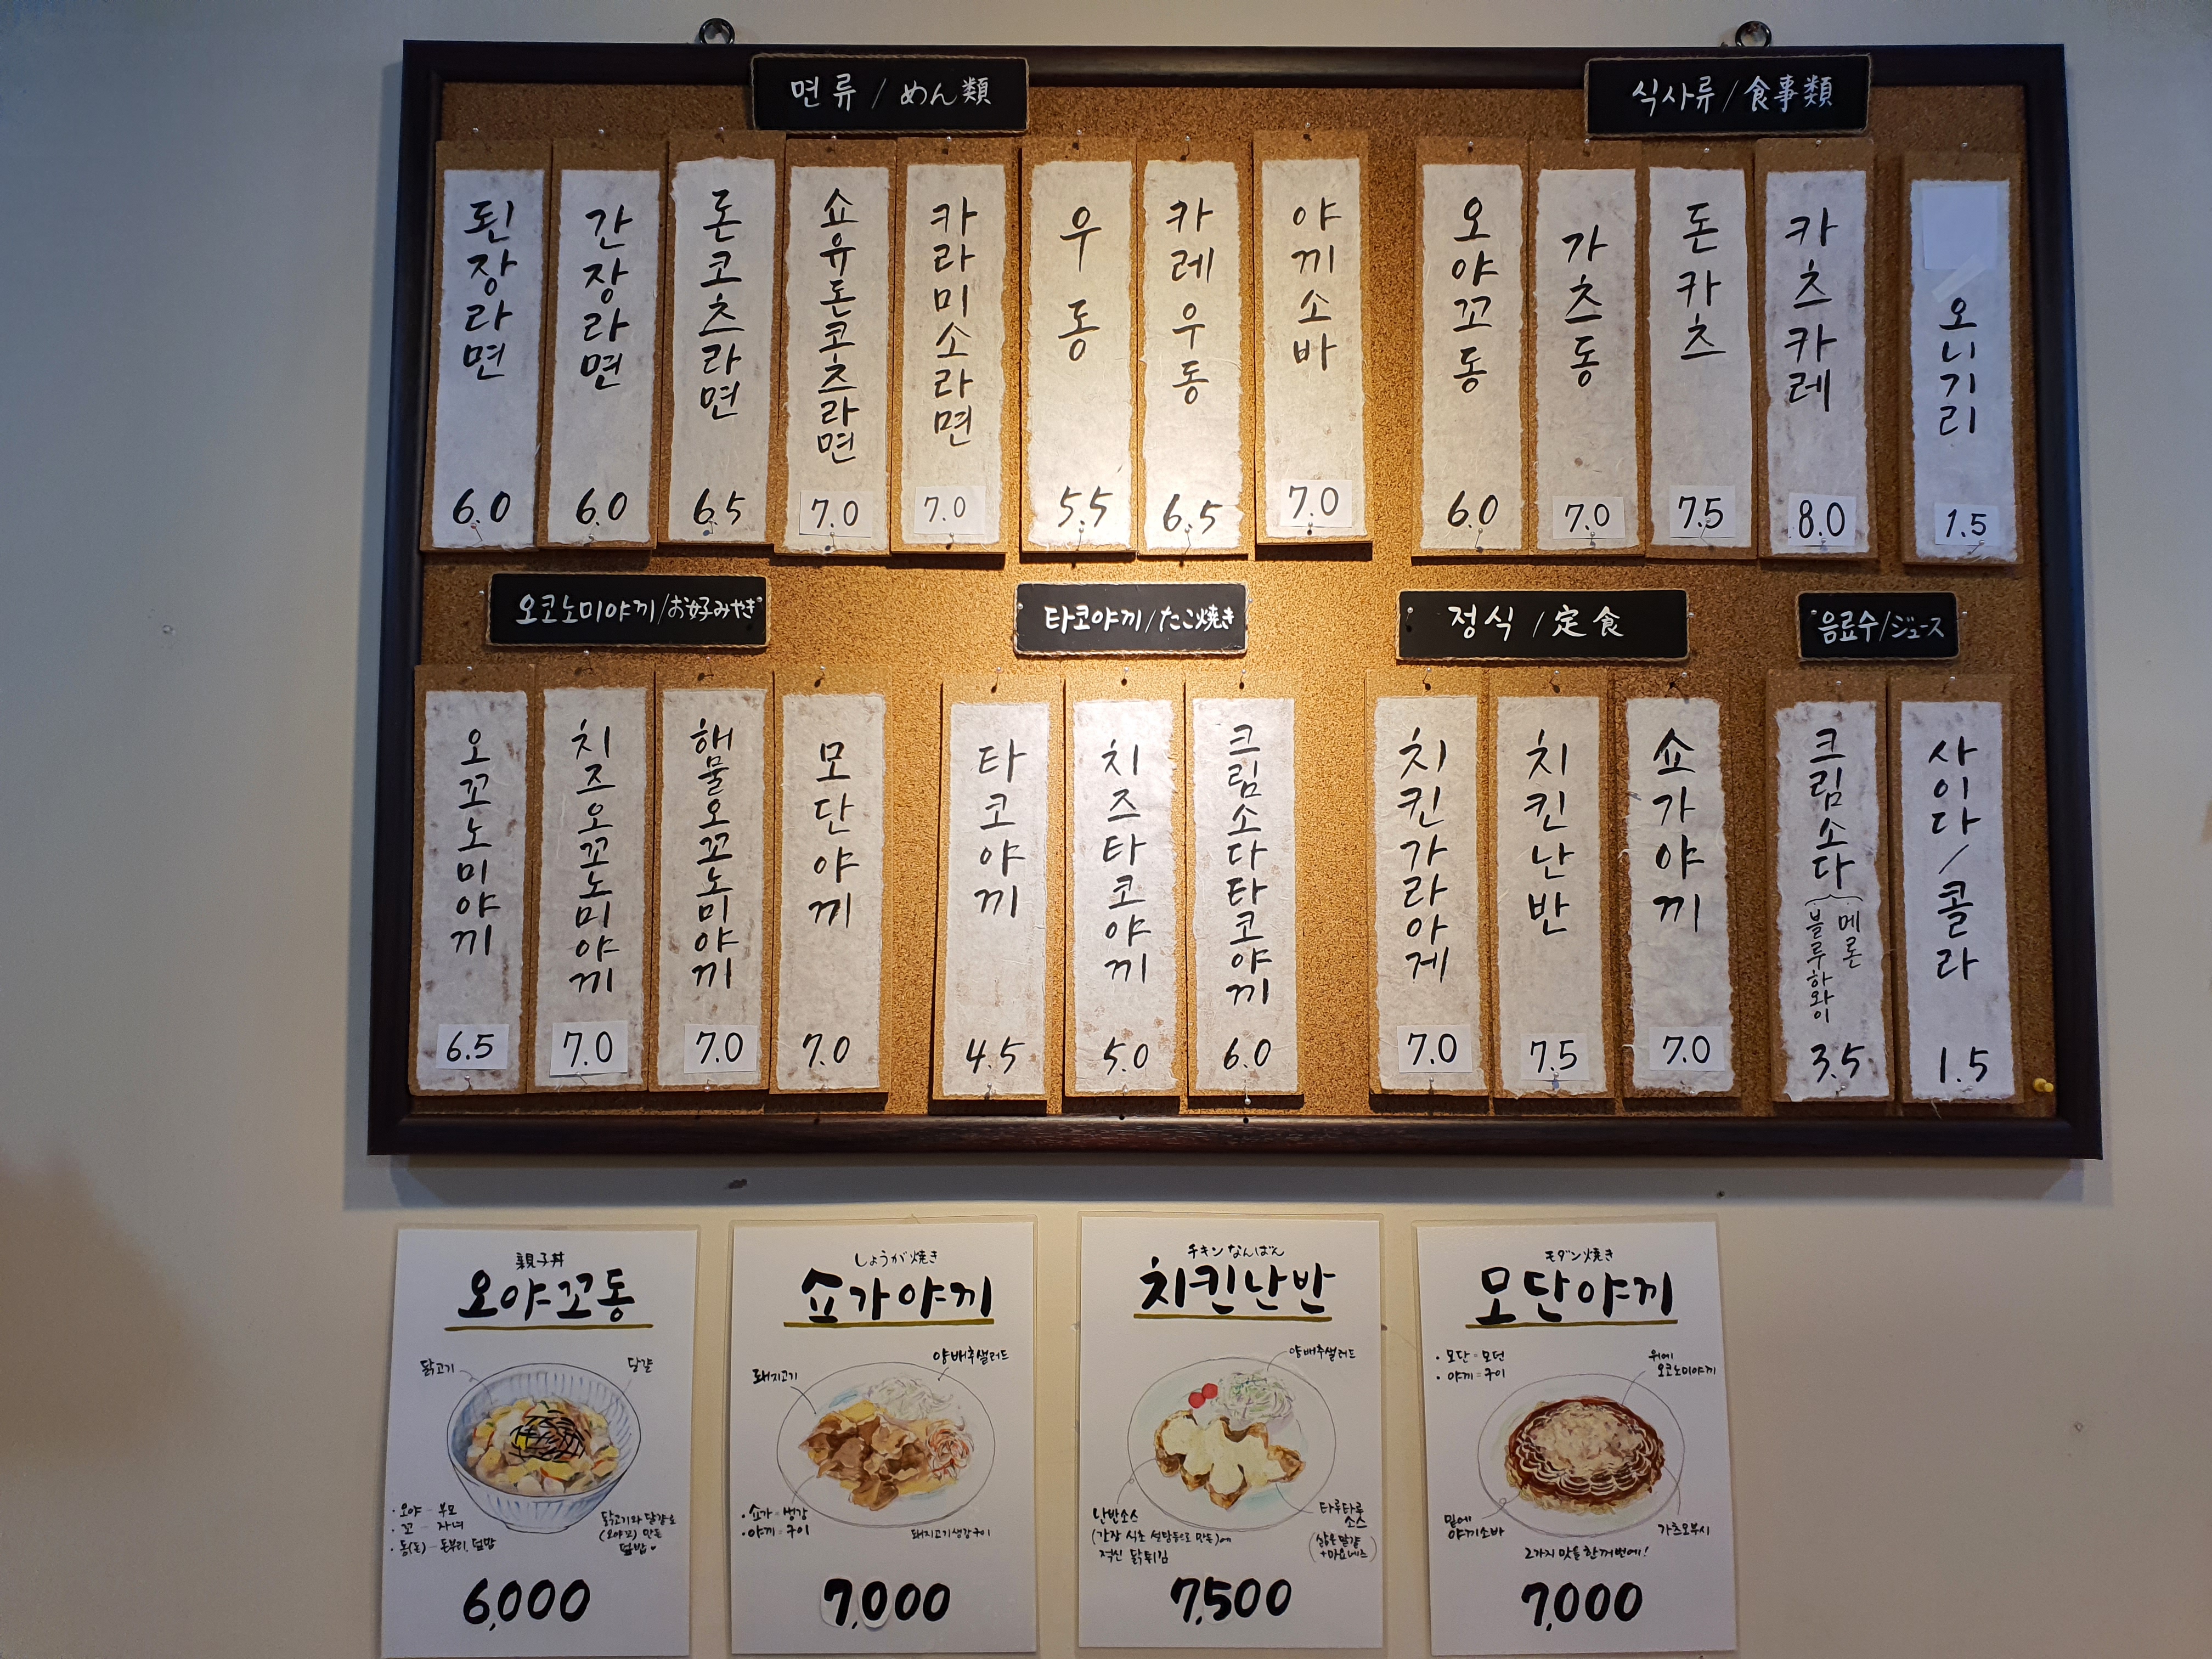 면류 / めん類
된장라면
6.0
간장라면
6.0
돈코츠라면
6.5
쇼유돈코츠라면
7.0
카라미소라면
7.0
우동
5.5
카레우동
6.5
야끼소바
7.0
식사류 / 食事類
오야꼬동
6.0
가츠동
7.0
돈카츠
7.5
카츠카레
8.0
오니기리
1.5
오코노미야끼/お好みやき
오꼬노미야끼
6.5
치즈오꼬노미야끼
7.0
해물오꼬노미야끼
7.0
모단야끼
7.0
타코야끼/たこ焼き
타코야끼
4.5
치즈타코야끼
5.0
크림소다타코야끼
6.0
정식 / 定食
치킨가라아게
7.0
치킨난반
7.5
쇼가야끼
7.0
음료수/ジュース
크림소다
메론
블루하와이
3.5
사이다/콜라
1.5
親子丼
오야꼬동
닭고기
달걀
• 오야 - 부모
• 꼬 - 자녀
• 동(돈) - 돈부리, 덮밥
닭고기와 달걀로
(오야꼬) 만든
덮밥
6,000
しょうが焼き
쇼가야끼
돼지고기
양배추샐러드
• 쇼가 = 생강
• 야끼 = 구이
돼지고기생강구이
7,000
チキンなんばん
치킨난반
양배추샐러드
난반소스
(간장 식초 설탕등으로 만든)에
적신 닭튀김
타루타루
소스
(삶은달걀
+마요네즈)
7,500
モダン焼き
모단야끼
• 모단 = 모던
• 야끼 = 구이
위에
오코노미야끼
밑에
야끼소바
가츠오부시
2가지 맛을 한꺼번에!
7,000